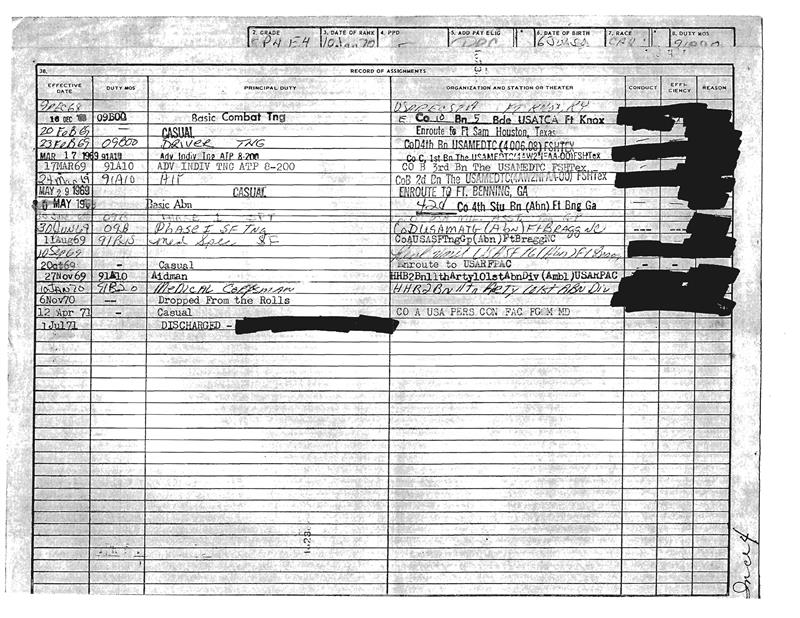 2. GRADE 3. DATE OF RANK 4. PPD 5. ADD PAY ELIG 6. DATE OF BIRTH 7. RACE 8. DUTY MOS
SP4 E4 10 Jan 70 -
38. RECORD OF ASSIGNMENTS
EFFECTIVE DATE DUTY MOS PRINCIPAL DUTY ORGANIZATION AND STATION OR THEATER CONDUCT EFFI- CIENCY REASON
9 DEC 68 FT KNOX, KY
16 DEC 09B00 Basic Combat Tng E Co 10 Bn 5 Bde USATCA Ft Knox
20 Feb 69 CASUAL Enroute to Ft Sam Houston, Texas
23 Feb 69 09B00 DRIVER TNG CoD4th Bn USAMEDTC(4006.08)FSHTEX
MAR 17 1969 91A10 Adv Indiv Tng ATP 8-200 Co C, 1st Bn The USAMEDTC FSHTex
17MAR69 91A10 ADV INDIV TNG ATP 8-200 CO B 3rd Bn The USAMEDTC FSHTex
24 Mar 91A10 AIT CoB 2d Bn The FSHTex
MAY 29 1969 CASUAL ENROUTE TO FT. BENNING, GA
MAY Basic Abn 42d Co 4th Stu Bn (Abn) Ft Bng Ga
09B
30 Jun 69 09B Phase I SF TNG (Abn) Ft Bragg NC
11Aug69 Med Spec SF Co USASFTngGp(Abn)FtBraggNC
10Sep69
20Oct69 - Casual Enroute to USARPAC
27Nov69 91A10 Aidman HHB2Bn11thArty101stAbnDiv(Ambl)USARPAC
10Jan70 91B20 Medical Corpsman HHB 2 BN 11th ARTY 101st ABN Div
6Nov70 -- Dropped From the Rolls
12 Apr 71 - Casual CO A USA PERS CON FAC FGGM MD
1Jul71 DISCHARGED -
Incl 4